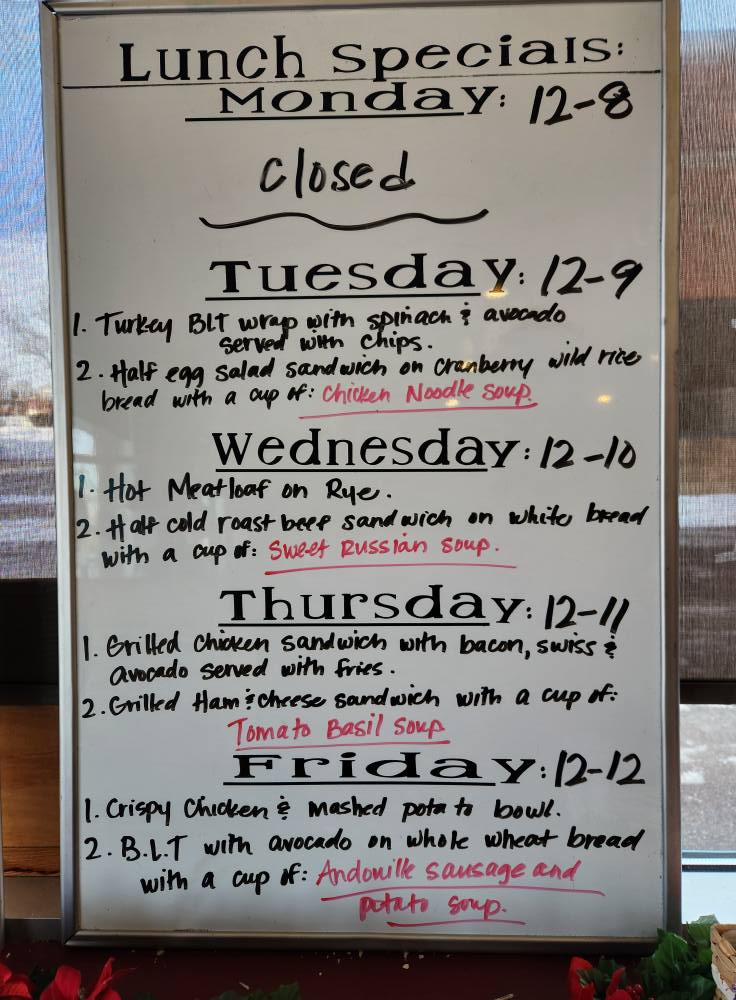 Lunch Specials:
Monday: 12-8
Closed
Tuesday: 12-9
1. Turkey BLT wrap with spinach & avocado
served with chips.
2. Half egg salad sandwich on cranberry wild rice
bread with a cup of: Chicken Noodle soup.
Wednesday: 12-10
1. Hot Meatloaf on Rye.
2. Half cold roast beef sandwich on white bread
with a cup of: Sweet Russian soup.
Thursday: 12-11
1. Grilled chicken sandwich with bacon, swiss &
avocado served with fries.
2. Grilled Ham & cheese sandwich with a cup of:
Tomato Basil soup
Friday: 12-12
1. Crispy Chicken & mashed potato bowl.
2. B.L.T with avocado on whole wheat bread
with a cup of: Andouille sausage and
potato soup.